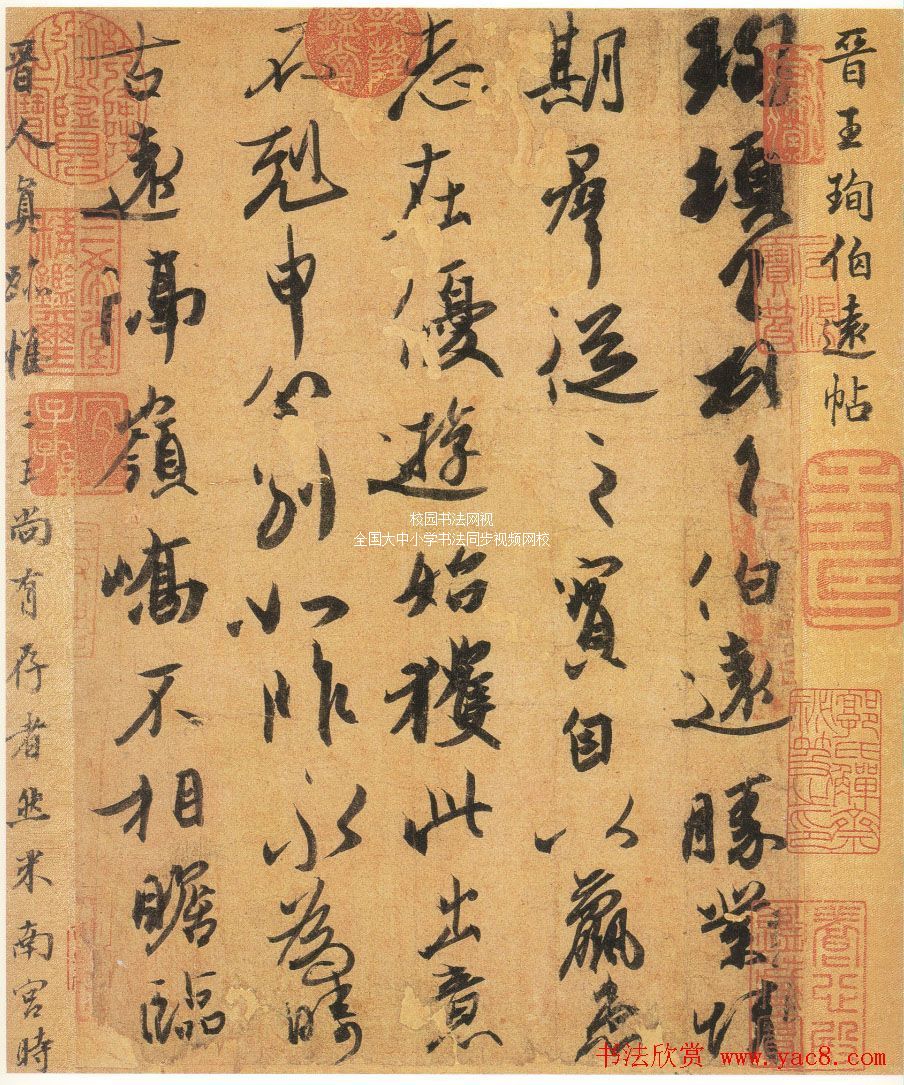 晉王珣伯遠帖
珣頓首頓首伯遠勝業情
期羣從之寶自以羸患
志在優遊始獲此出意
不剋申分別如昨永為疇
古遠隔嶺嶠不相瞻臨
晉人真跡惟二王尚有存者然米南宮時
校园书法网视
全国大中小学书法同步视频网校
书法欣赏 www.yac8.com